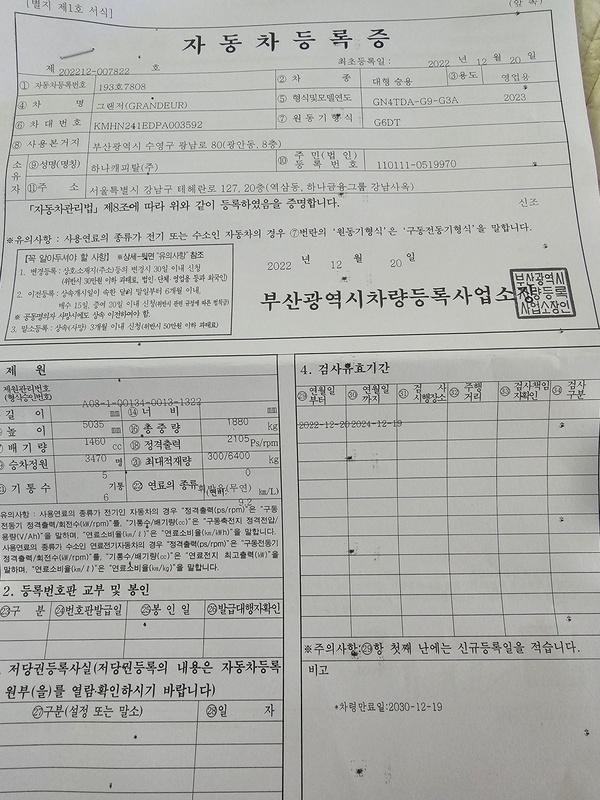 [별지 제1호 서식]
(앞 쪽)
자동차등록증
제 202212-007822 호
최초등록일 : 2022 년 12 월 20 일
① 자동차등록번호 193호7808 ② 차 종 대형 승용 ③용도 영업용
④ 차 명 그랜저(GRANDEUR) ⑤ 형식및모델연도 GN4TDA-G9-G3A 2023
⑥ 차 대 번 호 KMHN241EDPA003592 ⑦ 원 동 기 형 식 G6DT
⑧ 사용본거지 부산광역시 수영구 광남로 80(광안동, 8층)
소유자 ⑨성명(명칭) 하나캐피탈(주) ⑩ 주민(법인)등록번호 110111-0519970
⑪ 주 소 서울특별시 강남구 테헤란로 127, 20층(역삼동, 하나금융그룹 강남사옥)
「자동차관리법」 제8조에 따라 위와 같이 등록하였음을 증명합니다. 신조
※유의사항 : 사용연료의 종류가 전기 또는 수소인 자동차의 경우 ⑦번란의 '원동기형식'은 '구동전동기형식'을 말합니다.
[꼭 알아두셔야 할 사항] ※상세-뒷면 "유의사항" 참조
1. 변경등록 : 상호·소재지(주소)등의 변경시 30일 이내 신청
(위반시 30만원 이하 과태료, 법인·단체·영업용 등과 외국인)
2. 이전등록 : 상속개시일이 속한 달의 말일부터 6개월 이내,
매수 15일, 증여 20일 이내 신청(위반시 관련 규정에 따른 범칙금)
※ 공동명의자 사망시에도 상속 이전하여야 함.
3. 말소등록 : 상속(사망) 3개월 이내 신청(위반시 50만원 이하 과태료)
2022 년 12 월 20 일
부산광역시차량등록사업소장
부산광역시
차량등록
사업소장인
제 원
제원관리번호
(형식승인번호) A08-1-00134-0013-1322
길 이 5035 mm ⑭ 너 비 1880 mm
높 이 1460 mm ⑯ 총 중 량 2105 kg
배 기 량 3470 cc ⑱ 정격출력 300/6400 Ps/rpm
승차정원 5 명 ⑳ 최대적재량 0 kg
기 통 수 6 기통 ㉒ 연료의 종류 휘발유(무연) (연비: 9.2 km/L)
유의사항 : 사용연료의 종류가 전기인 자동차의 경우 "정격출력(ps/rpm)"은 "구동
전동기 정격출력/회전수(kW/rpm)"를, "기통수/배기량(cc)"은 "구동축전지 정격전압/
용량(V/Ah)"을 말하며, "연료소비율(km/ℓ)"은 "연료소비율(km/kWh)"을 말합니다.
사용연료의 종류가 수소인 연료전기자동차의 경우 "정격출력(ps/rpm)"은 "구동전동기
정격출력/회전수(kW/rpm)"를, "기통수/배기량(cc)"은 "연료전지 최고출력(kW)"을
말하며, "연료소비율(km/ℓ)"은 "연료소비율(km/kg)"을 말합니다.
2. 등록번호판 교부 및 봉인
㉓구 분 ㉔번호판발급일 ㉕봉 인 일 ㉖발급대행자확인
저당권등록사실(저당권등록의 내용은 자동차등록
원부(을)를 열람확인하시기 바랍니다)
㉗구분(설정 또는 말소) ㉘일 자
4. 검사유효기간
㉙연월일부터 ㉚연월일까지 ㉛검 사 시행장소 ㉜주행거리 ㉝검사책임자확인 ㉞검사구분
2022-12-20 2024-12-19
※주의사항:㉙항 첫째 난에는 신규등록일을 적습니다.
비고
*차령만료일:2030-12-19